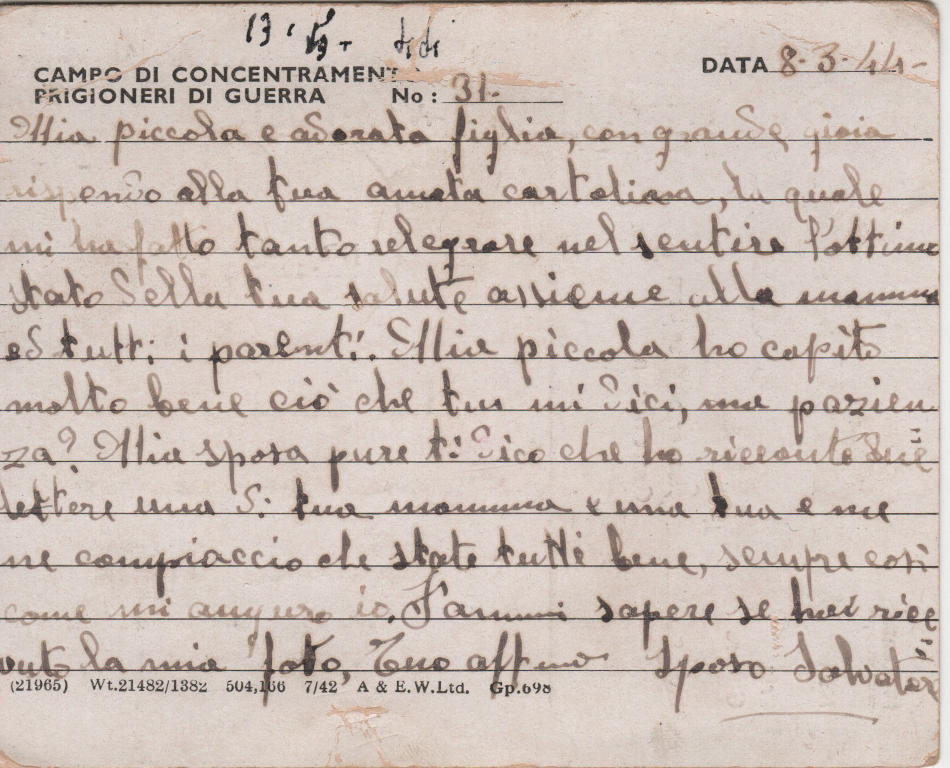 CAMPO DI CONCENTRAMENTO
DATA 8-3-44-
PRIGIONERI DI GUERRA No: 31-
Mia piccola e adorata figlia, con grande gioia
rispendo alla tua amata cartolina, la quale
mi ha fatto tanto relegrare nel sentire l'ottimo
stato della tua salute assieme alla mamma
ed tutti i parenti. Mia piccola ho capito
molto bene ciò che tua mi dici, ma pazien
za? Mia sposa pure ti dico che ho ricevuto due
lettere una di tua mamma e una tua e me
ne compiaccio che state tutti bene, sempre così
come mi auguro io. Fammi sapere se hai rice
vuto la mia foto, Tuo aff.mo sposo Salvatore
(21965) Wt.21482/1382 504,166 7/42 A & E.W.Ltd. Gp.698